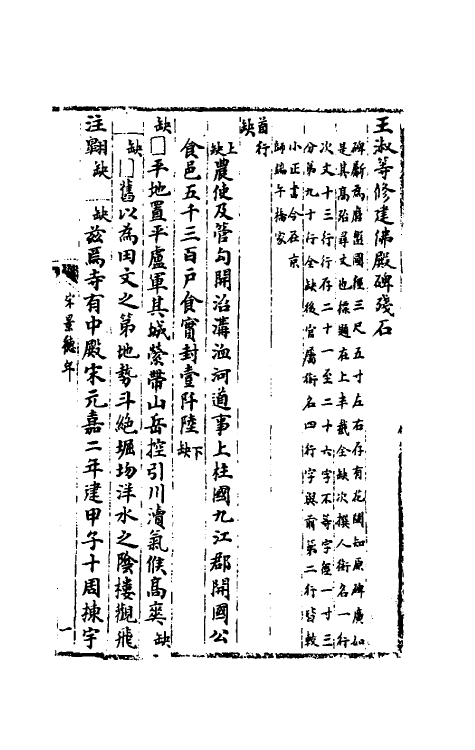 王淑等修建佛殿碑殘石
碑斷為磨盤圓徑三尺五寸左右存有花闌知原碑廣如
是其高殆尋丈也標題在上半截全缺次撰人銜名一行
次文十三行行存二十一至二十六字不等字徑一寸三
分第九十行全缺後官屬銜名四行字與前第二行皆較
小正書今在京
師端午橋家
首行
缺
上缺農使及管句開治溝洫河道事上柱國九江郡開國公
食邑五千三百戶食實封壹阡陸下缺
缺□平地置平盧軍其城縈帶山岳控引川瀆氣候高爽缺
缺□舊以為田文之第地勢斗絕堀㘬洋水之陰樓觀飛
注翶缺 缺茲焉寺有中殿宋元嘉二年建甲子十周揀宇
宋景德年
一